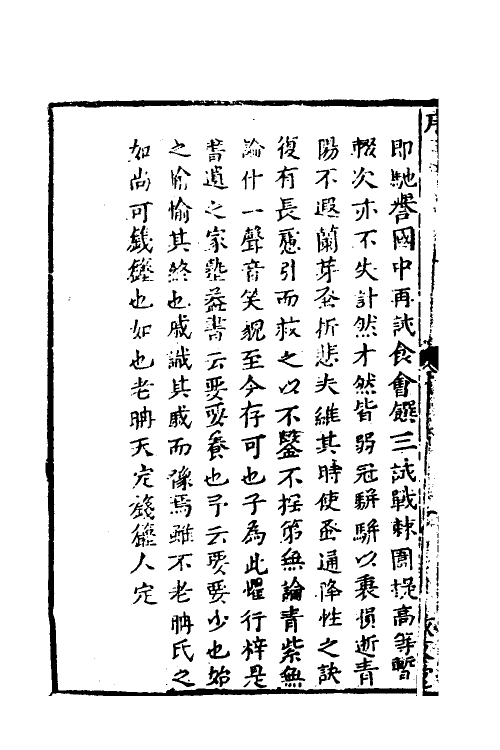 即馳譽國中再試食會饌三試戰棘圍援高等暫
輟次亦不失計然才然皆弱冠駢駢以秉損逝青
陽不遐蘭芽丞折悲夫維其時使丞通降性之訣
復有長慝引而救之以不鑒不挃第無論青紫無
論什一聲音笑貌至今存可也子為此懼行梓是
書遺之家塾益書云要要養也予云要要少也始
之愉愉其終也戚識其戚而豫焉雖不老聃氏之
如尚可籛鏗也如也老聃天定籛鏗人定